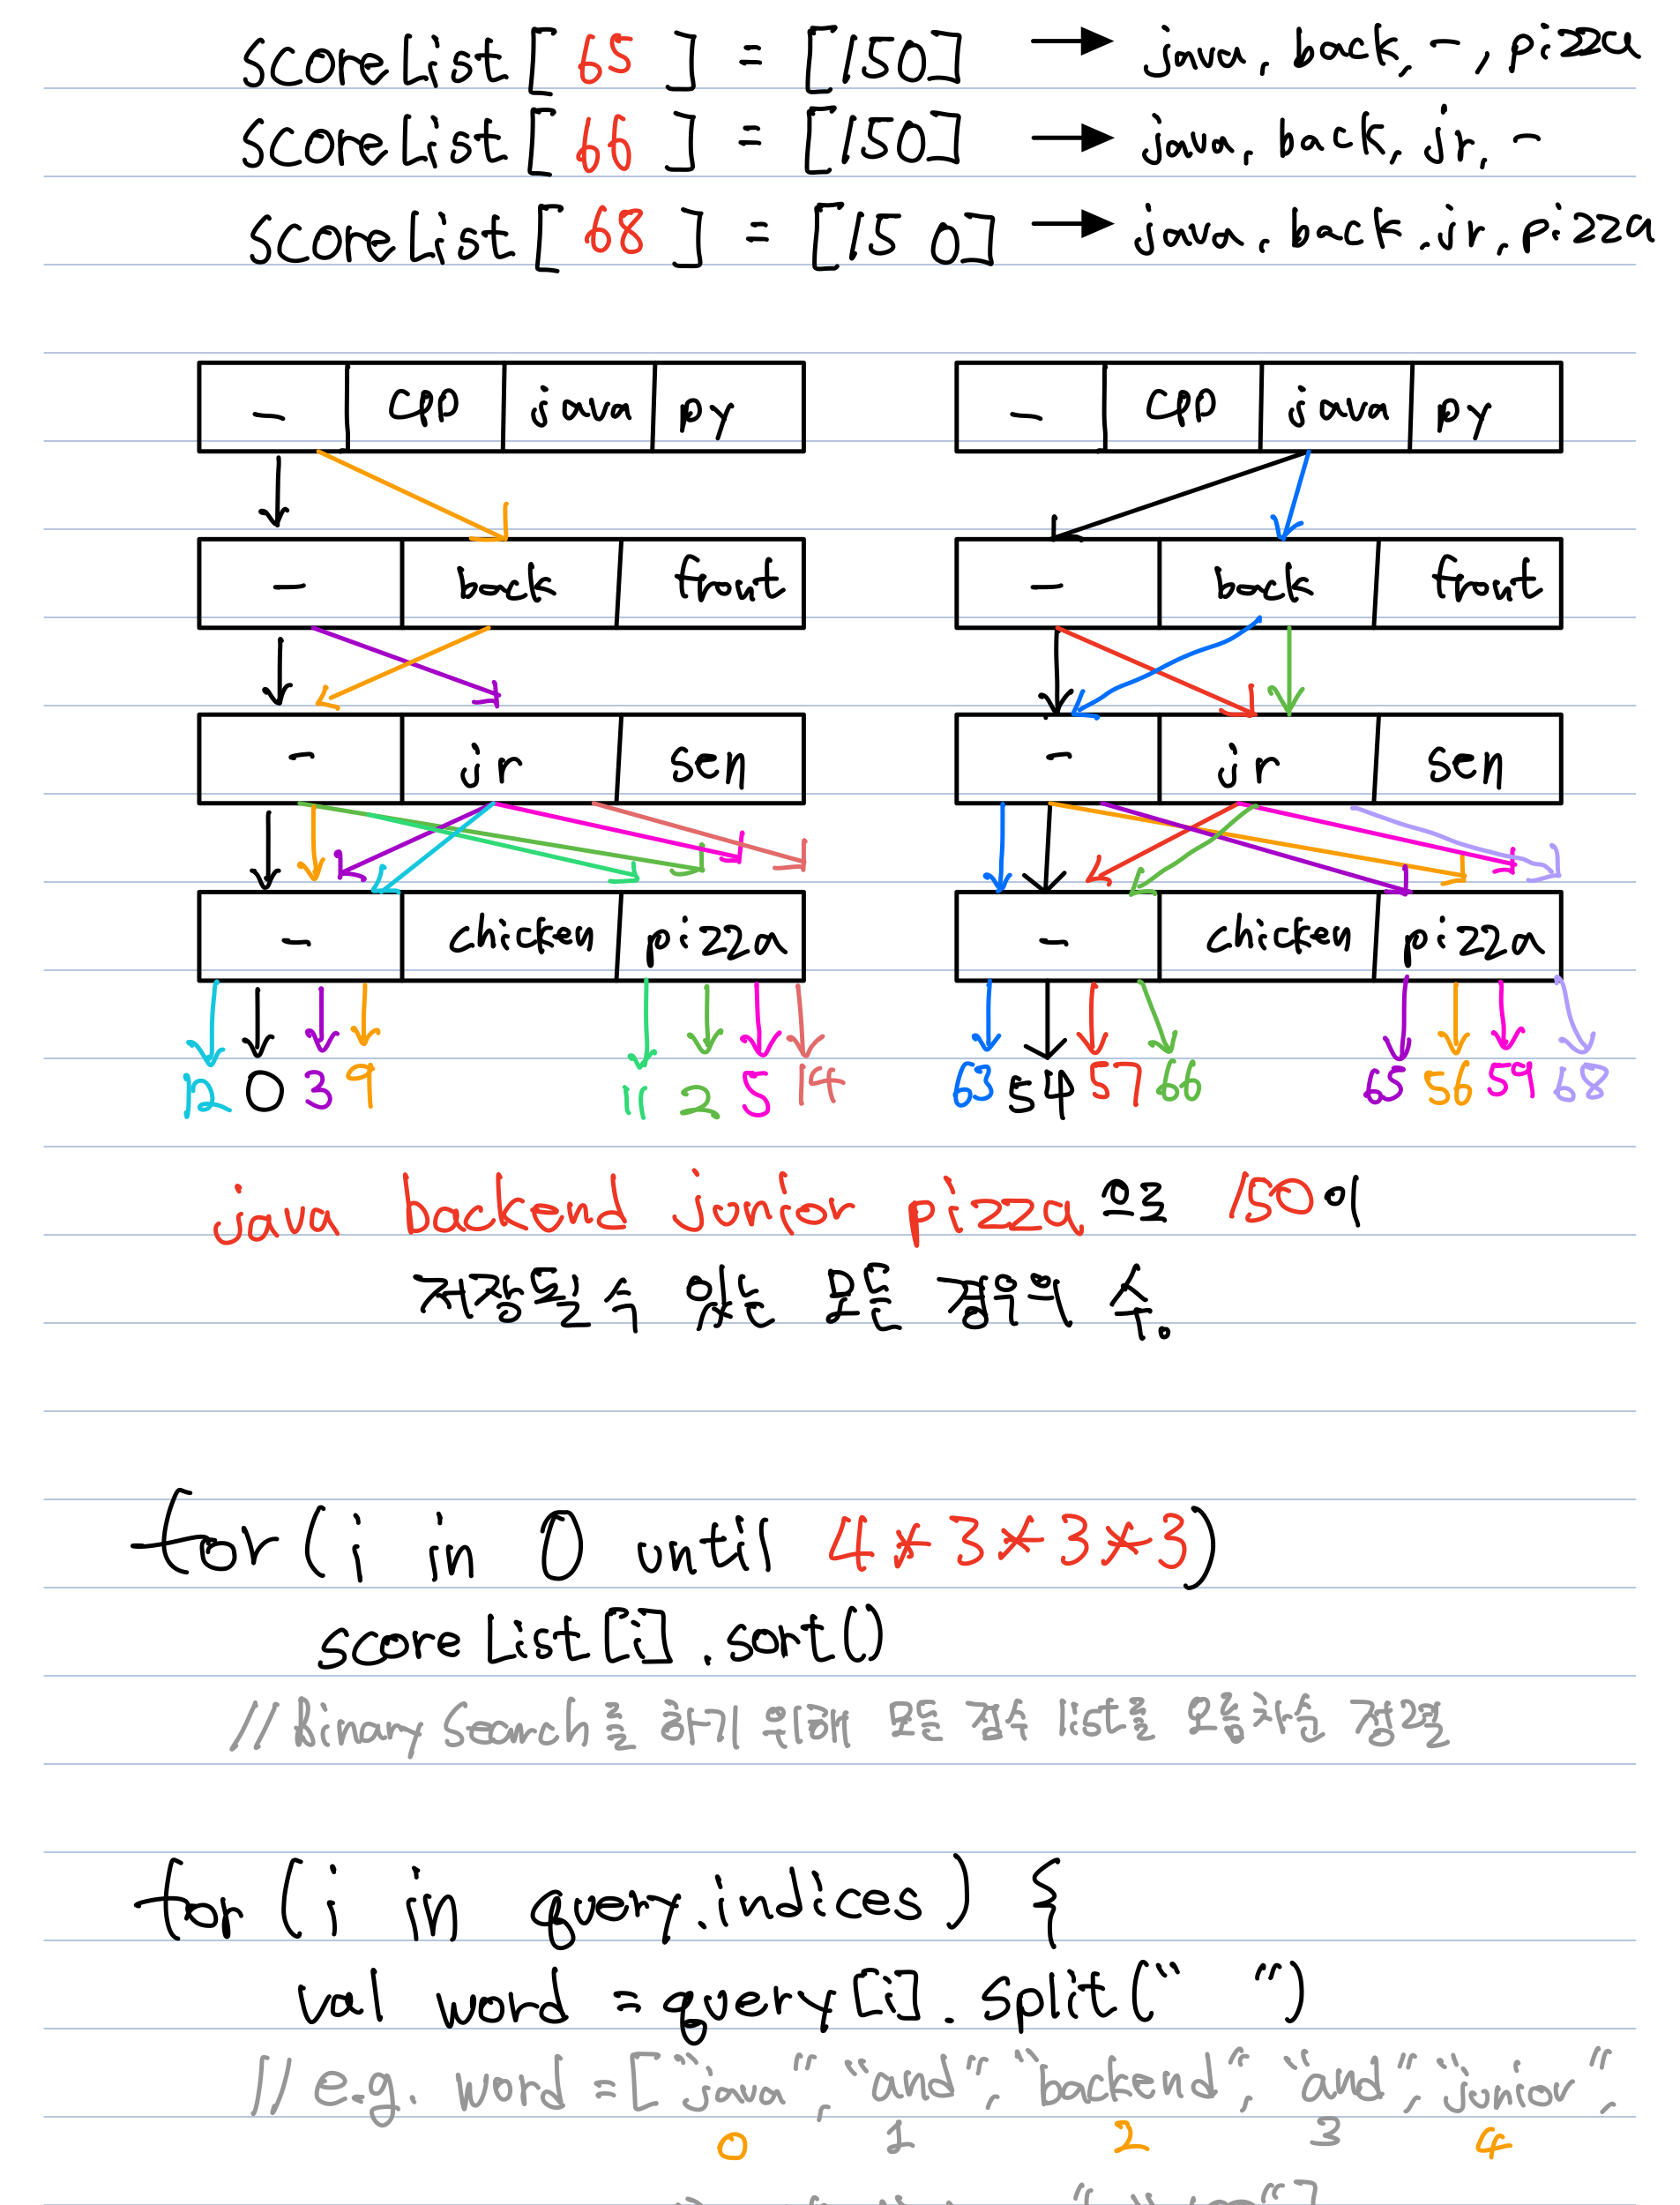 scoreList[ 65 ] = [150] → java, back, -, pizza
scoreList[ 66 ] = [150] → java, back, jr, -
scoreList[ 68 ] = [150] → java, back, jr, pizza
- cpp java py - cpp java py
- back front - back front
- jr sen - jr sen
- chicken pizza - chicken pizza
12 0 3 9 11 2 5 14 63 54 57 66 65 56 59 68
java backend junior pizza 으로 150이
저장될 수 있는 모든 경우의 수.
for(i in 0 until 4*3*3*3)
scoreList[i].sort()
//Binary Search를 하기 위해 모든 점수 list를 오름차순 정렬
for (i in query.indices) {
val word = query[i].split(" ")
// e.g. word = ["java", "and", "backend", "and", "junior",
0 1 2 3 4